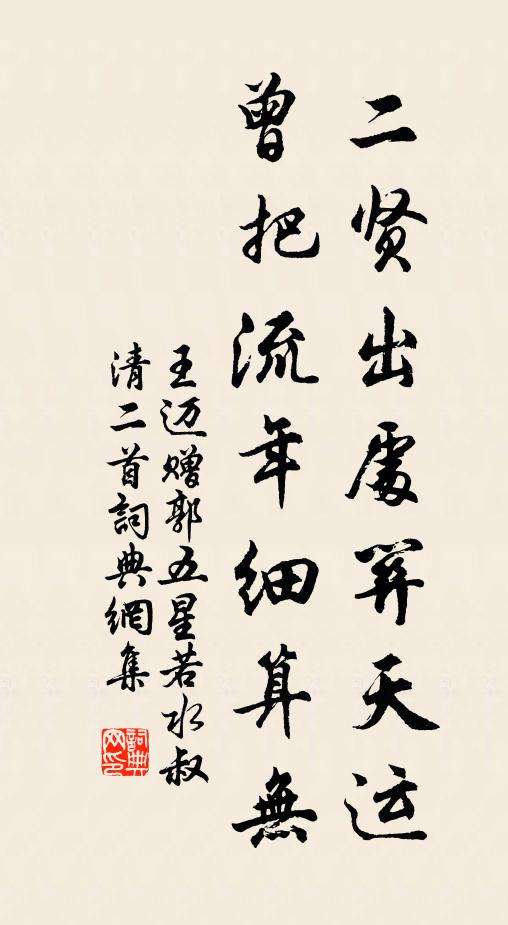 二贤出處关天运
曾把流年细算無
王迈赠郭五星若水叔
清二首詞典網集
詞典网印